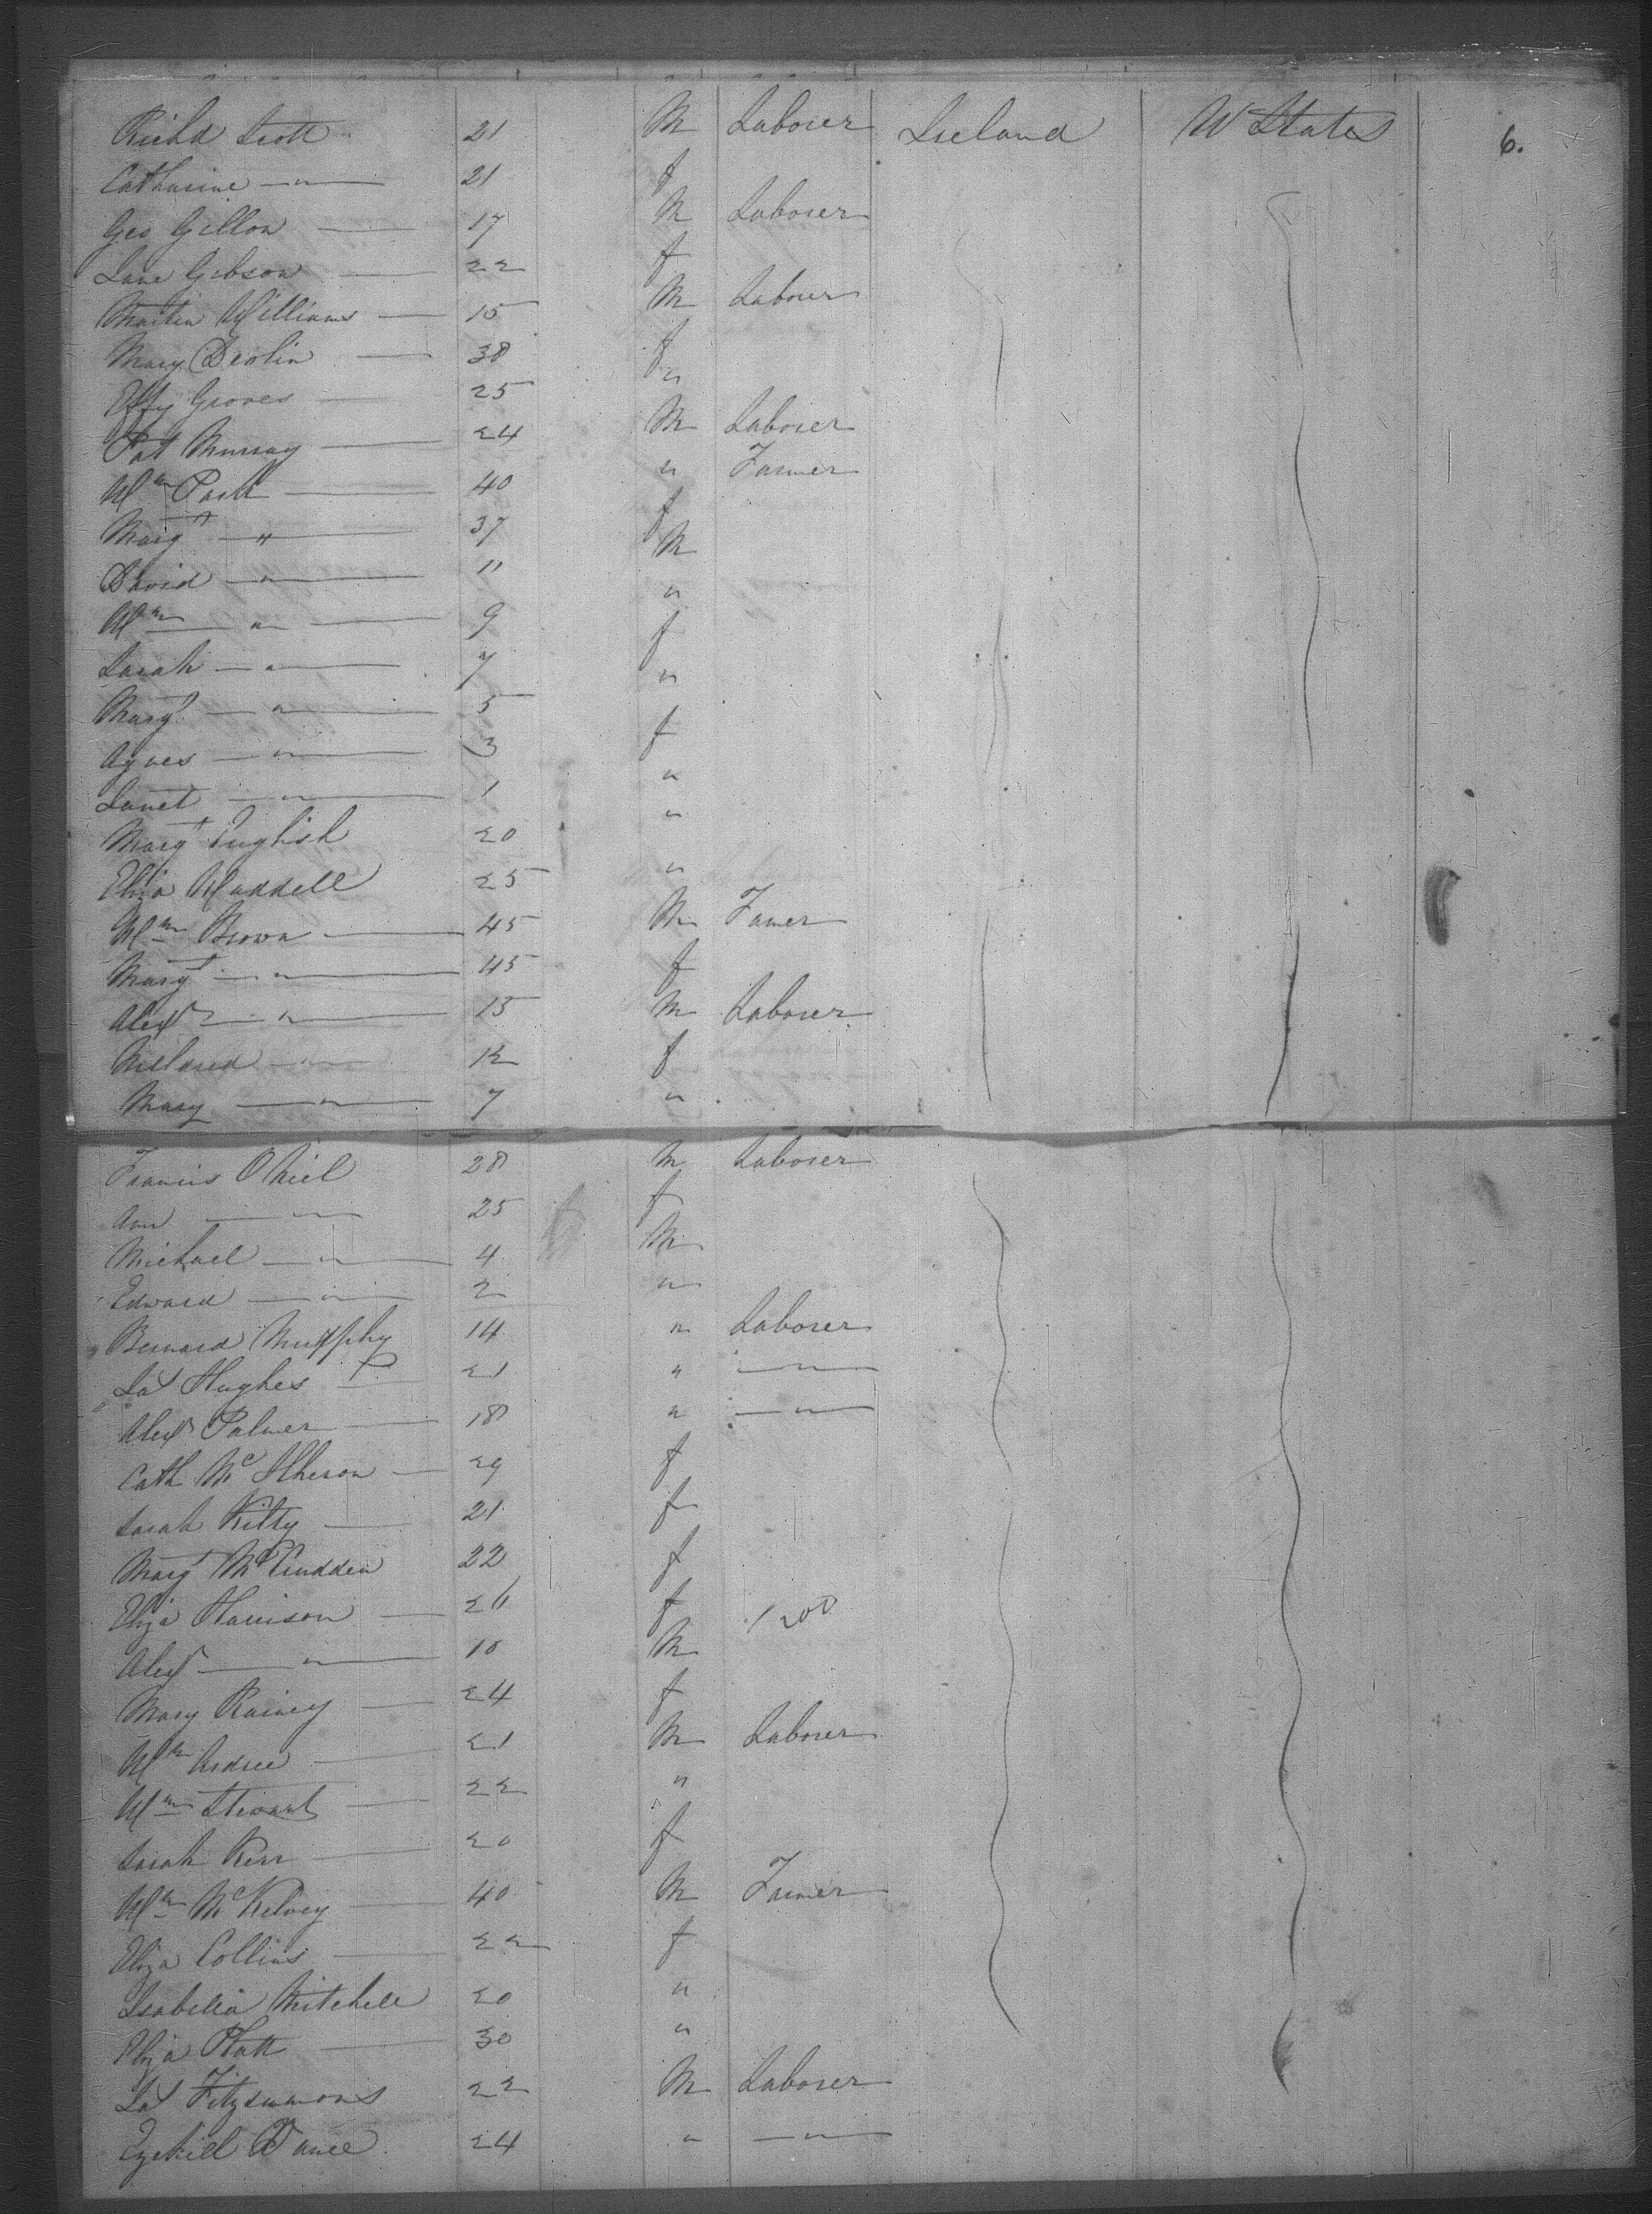 Richd Scott 21 M Laborer Ireland U States 6.
Catharine — " — 21 f
Geo Gillon — 17 M Laborer
Jane Gibson — 22 f
Martin Williams — 15 M Laborer
Mary Devlin — 38 f
Effy Groves — 25 "
Pat Murray — 24 M Laborer
Wm Park — 40 " Farmer
Margt — " — 37 f
David — " — 11 M
Wm — " — 9 "
Sarah — " — 7 f
Margt — " — 5 "
Agnes — " — 3 f
Janet — " — 1 "
Margt English 20 "
Eliza Waddell 25 "
Wm Brown — 45 M Farmer
Margt — " — 45 f
Alexr — " — 15 M Laborer
— " — 12 f
Mary — " — 7 "
Francis O Niel 28 M Laborer
Ann — " — 25 f
Michael — " — 4 M
Edward — " — 2 "
Bernard Murphy 14 " Laborer
Jas Hughes — 21 " — " —
Alexr Palmer — 18 " — " —
Cath Mc — 29 f
Sarah Kitty — 21 f
Margt McCudden 22 f
Eliza Harrison — 26 f
Alexr — " — 10 M
Mary Rainey — 24 f
Wm — 21 M Laborer
Wm Stewart — 22 "
Sarah Kerr — 20 f
Wm McKelvey — 40 M Farmer
Eliza Collins — 22 f
Isabella Mitchell 20 "
Eliza Platt — 30 "
Jas Fitzsimmons 22 M Laborer
Ezekiel Vance 24 " — " —